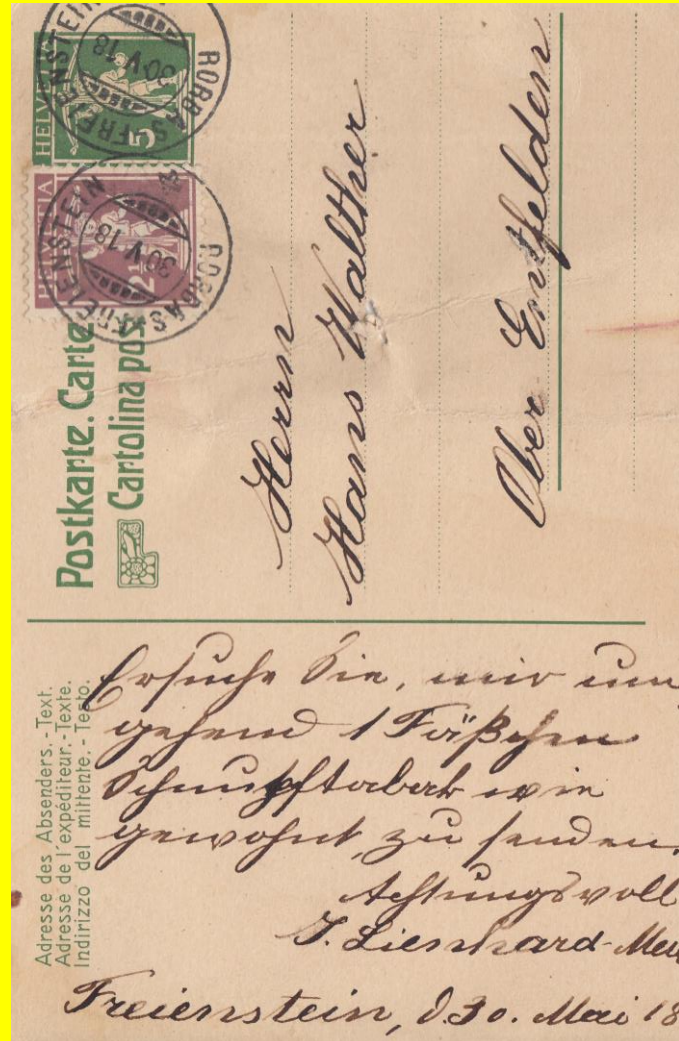 HELVETIA
5
RORBAS-FREIENSTEIN
30.V.18
HELVETIA
2½
RORBAS-FREIENSTEIN
30.V.18
Postkarte. Carte
Cartolina pos
Herrn
Hans Walther
Ober Entfelden
Adresse des Absenders. - Text.
Adresse de l'expéditeur. - Texte.
Indirizzo del mittente. - Testo.
Ersuche Sie, mir um
gehend 1 Fäßchen
Schnupftabak wie
gewohnt zu senden.
Achtungsvoll
J. Lienhard-
Freienstein, d. 30. Mai 18